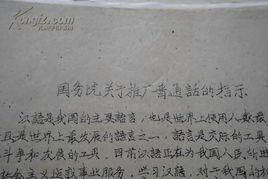 Kongfz.com
国务院关于推广普通話的指示
汉語是我国的主要語言，也是世界上使用人数最
且是世界上最发展的語言之一。語言是交际的工具
斗争和发展的工具。目前汉語正在为我国人民所進
社会主义建設事业服务。学习汉語，对于我国的